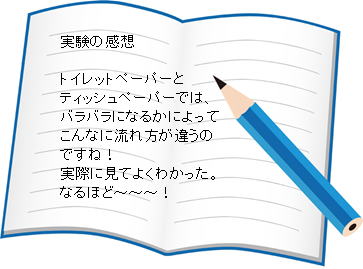 実験の感想
トイレットペーパーと
ティッシュペーパーでは、
バラバラになるかによって
こんなに流れ方が違うの
ですね！
実際に見てよくわかった。
なるほど～～～！